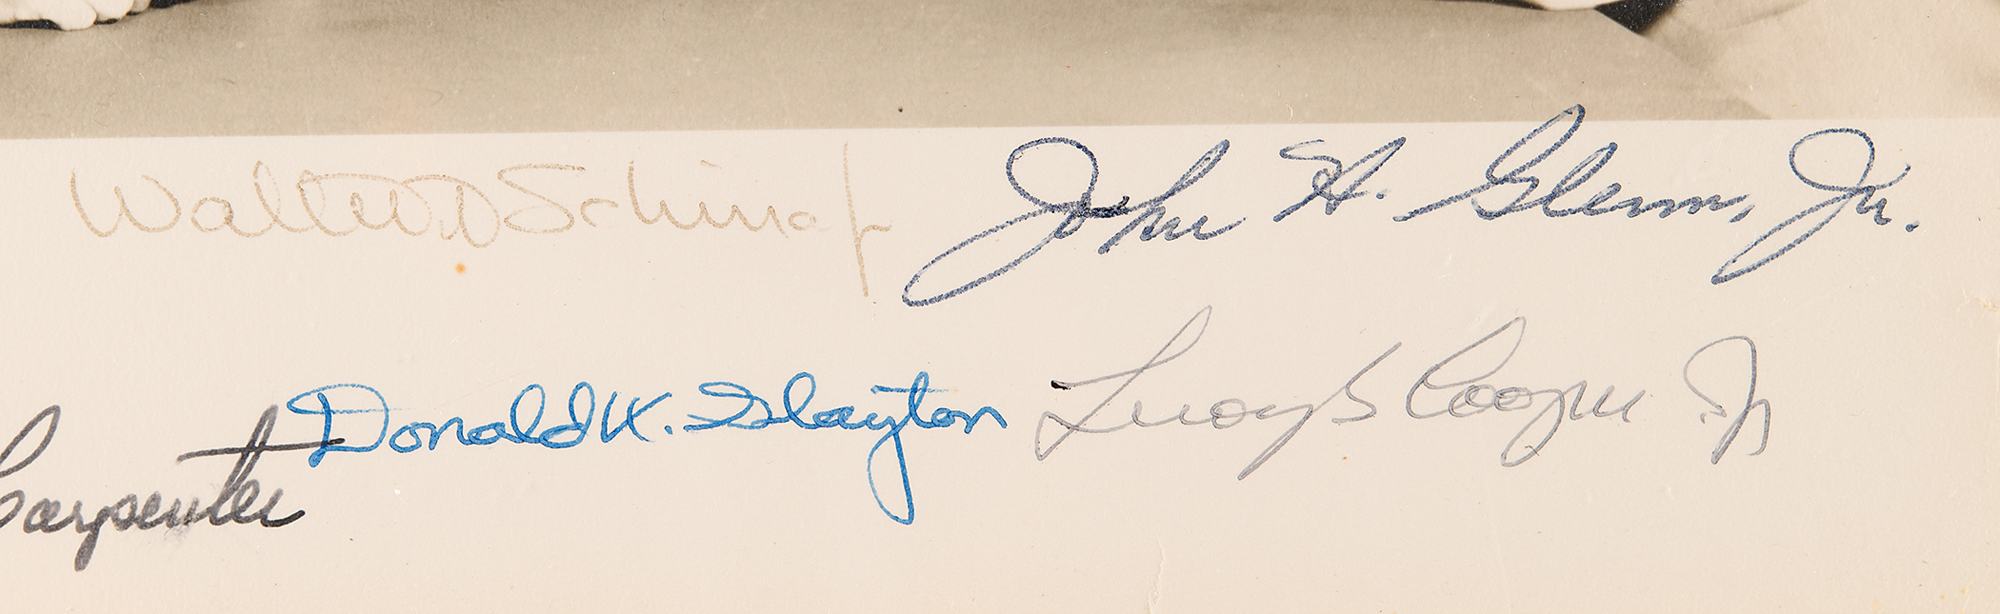 Walter M Schirra Jr John H. Glenn, Jr.
Carpenter Donald K. Slayton Leroy G Cooper Jr